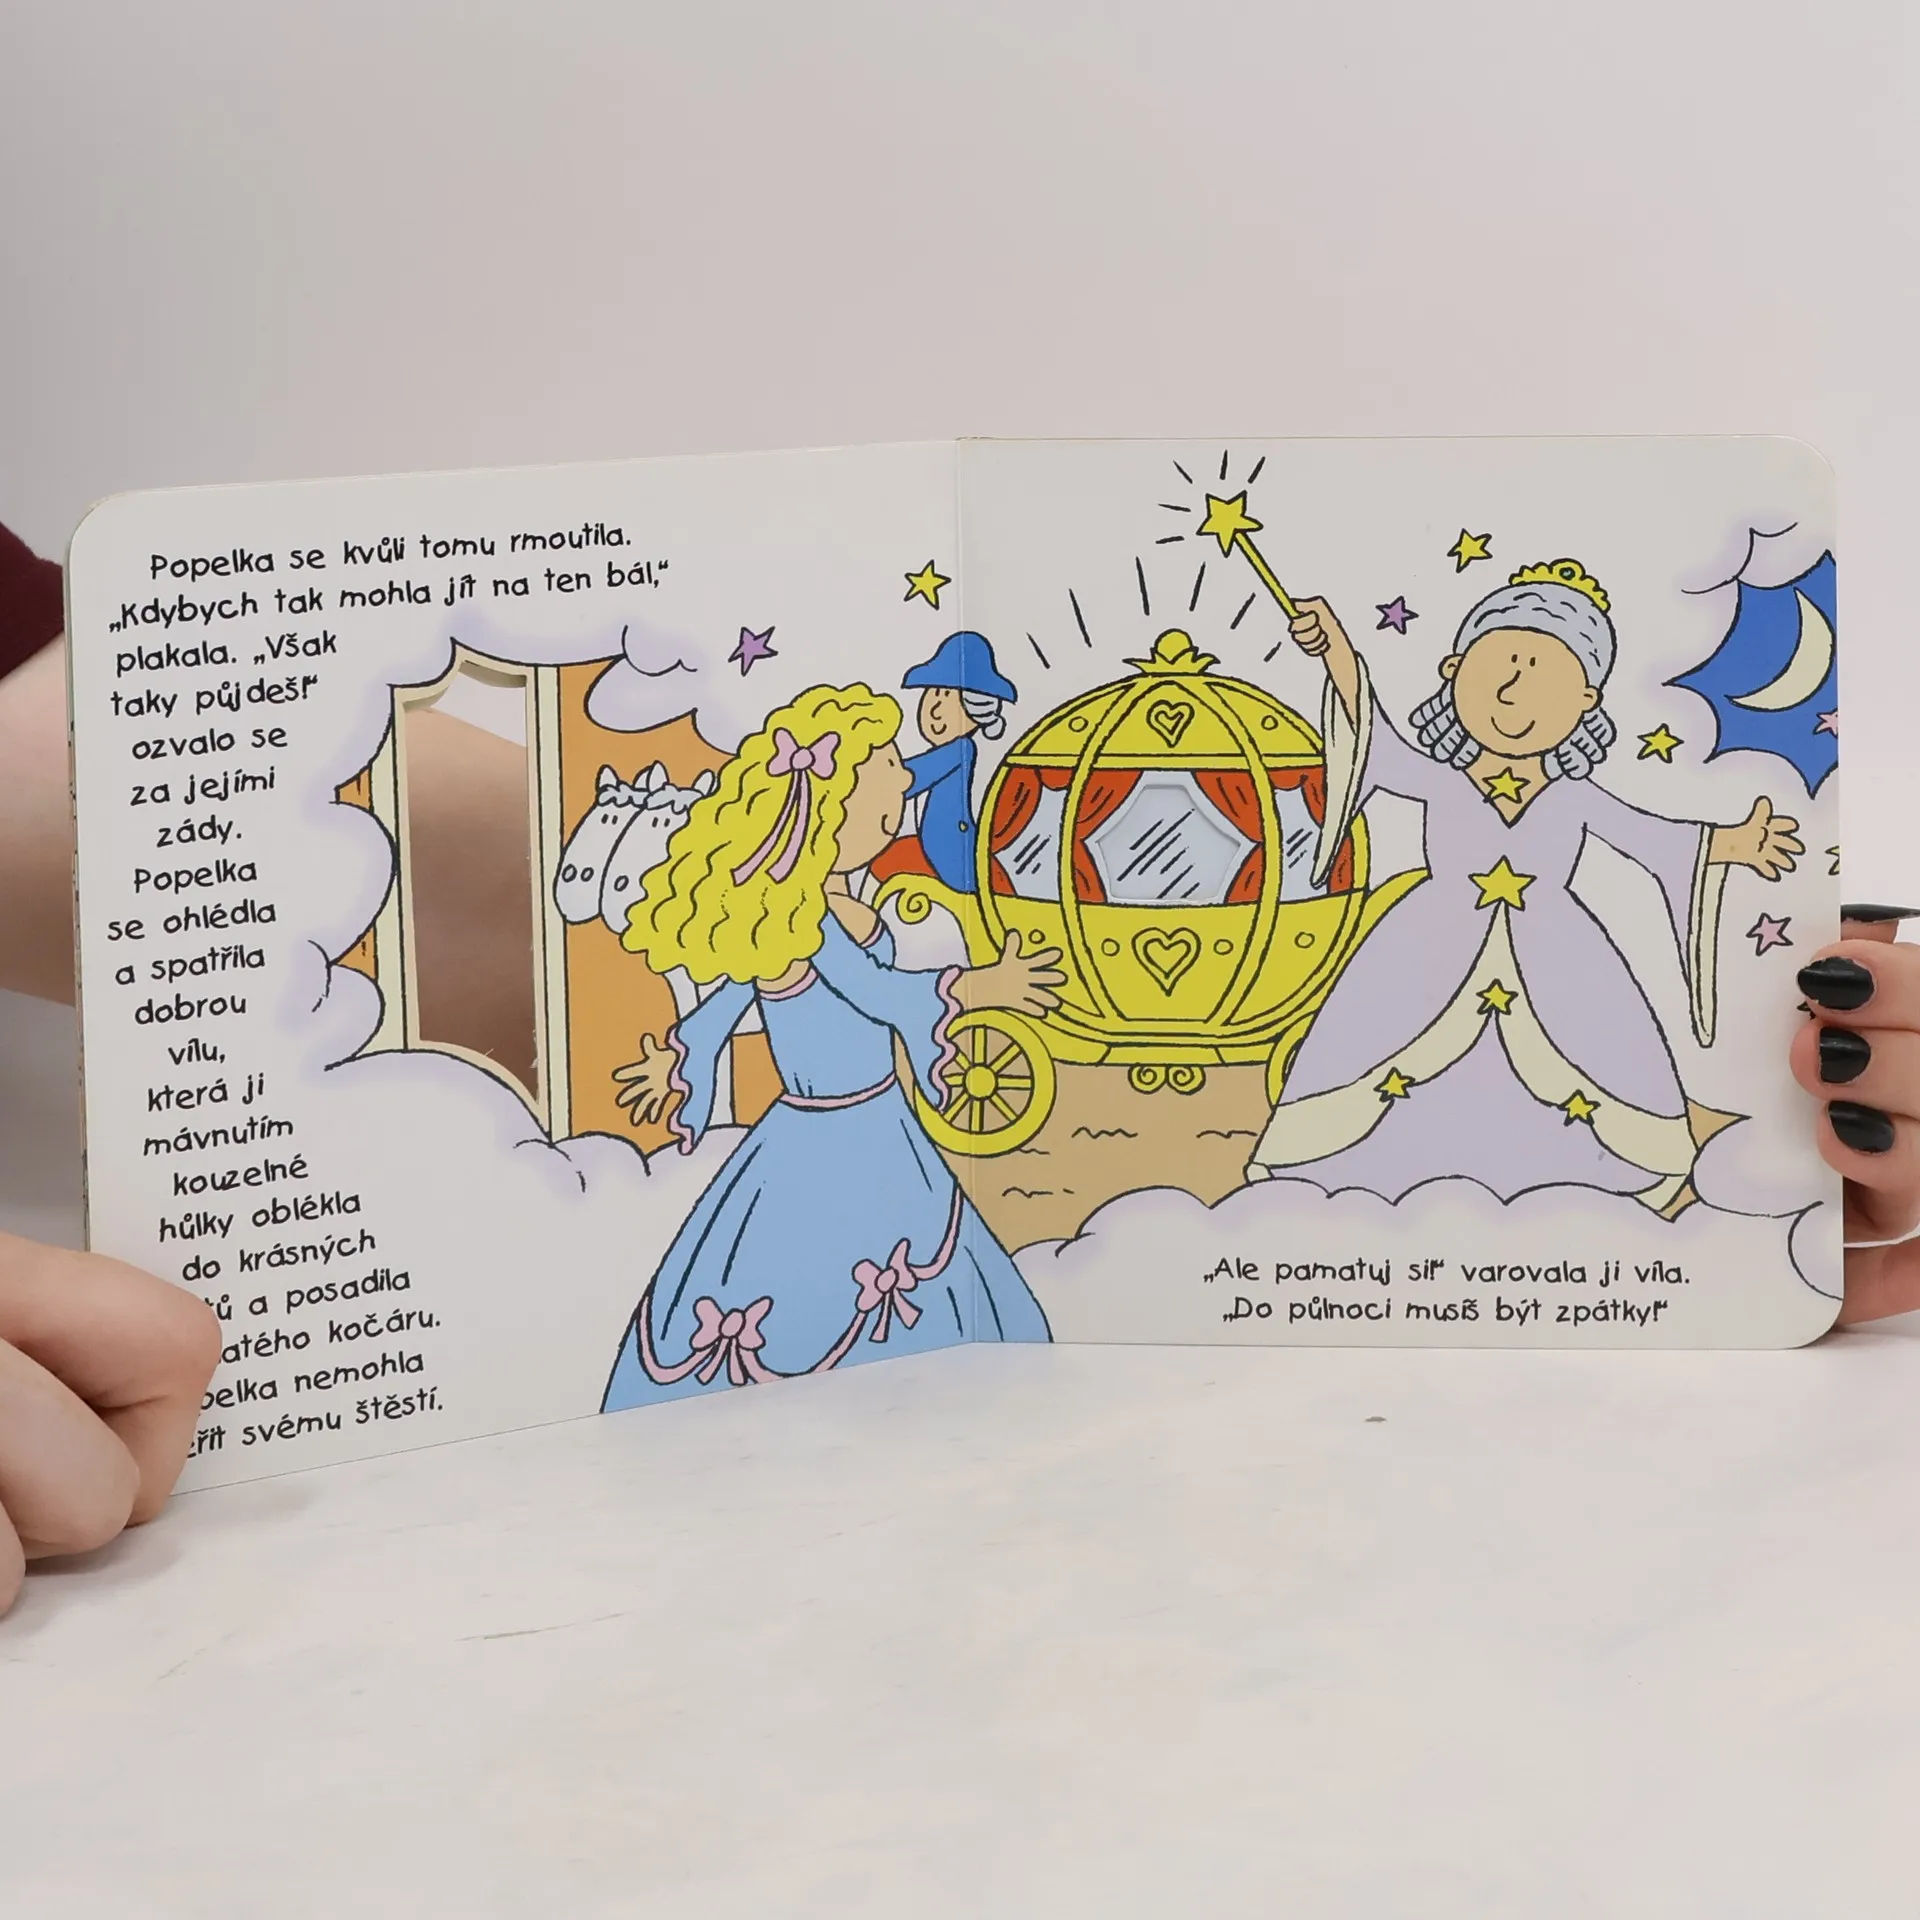 Popelka se kvůli tomu rmoutila.
„Kdybych tak mohla jít na ten bál,“
plakala. „Však
taky půjdeš!“
ozvalo se
za jejími
zády.
Popelka
se ohlédla
a spatřila
dobrou
vílu,
která ji
mávnutím
kouzelné
hůlky oblékla
do krásných
a posadila
kočáru.
nemohla
svému štěstí.
„Ale pamatuj si!“ varovala ji víla.
„Do půlnoci musíš být zpátky!“